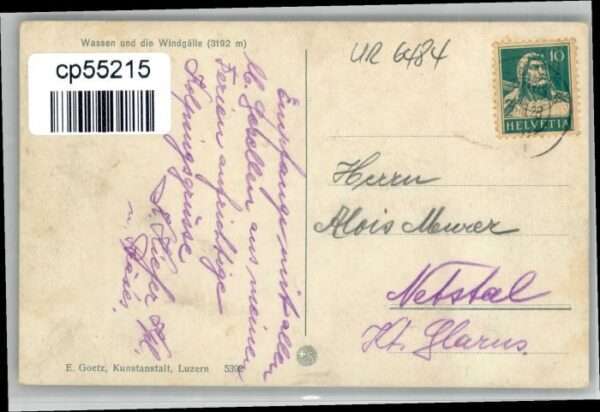 Wassen und die Windgälle (3192 m)
cp55215
UR 6484
10
HELVETIA
Empfange mit allen
M. Gesellen aus meinen
Ferien aufrichtige
Kolpingsgrüsse
Herrn
Alois Meurer
Netstal
Kt. Glarus.
E. Goetz, Kunstanstalt, Luzern 5392